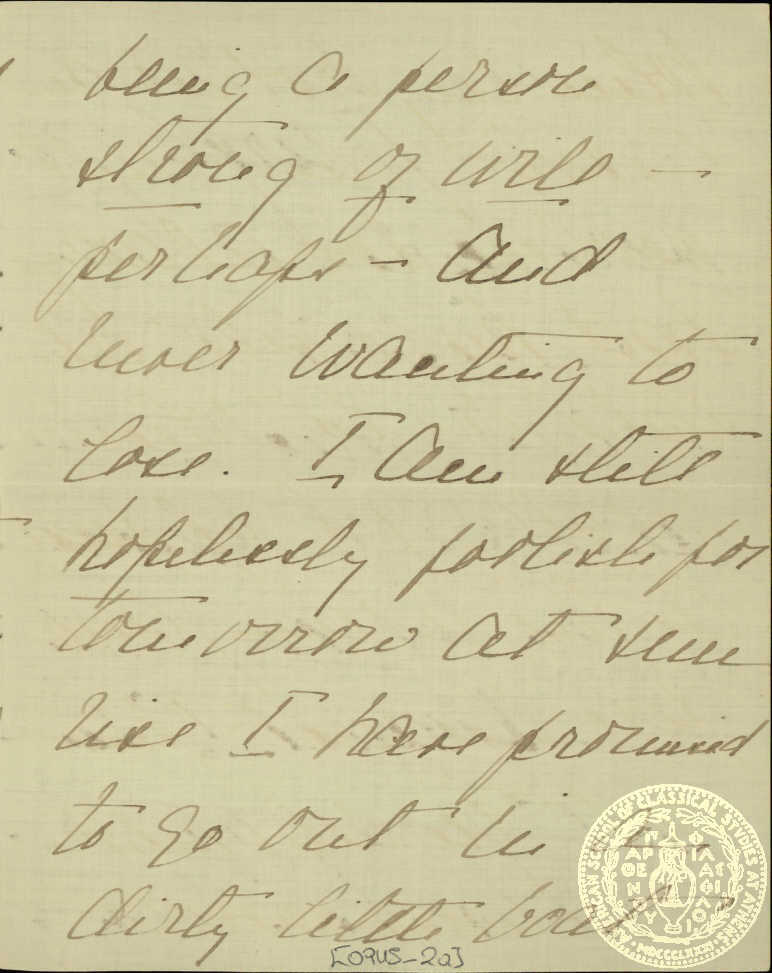 being a person
strong of will —
perhaps — and
never wanting to
lose. I am still
hopelessly foolish for
tomorrow at sun
rise I have promised
to go out in
dirty little boat
[OQUS-2a]
AMERICAN SCHOOL OF CLASSICAL STUDIES AT ATHENS
ΠΑΡΘΕΝΟΥ ΦΙΛΑΣ ΦΙΛΟΣ
MDCCCLXXXI